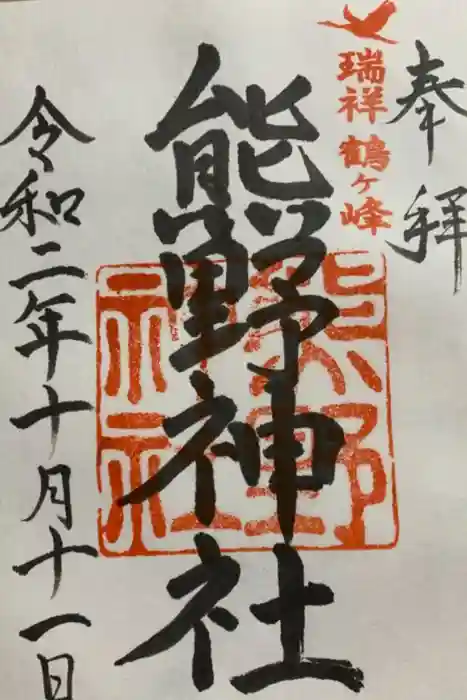 奉拝
瑞祥鶴ヶ峰
熊野神社
熊野
神社
令和二年十月十一日